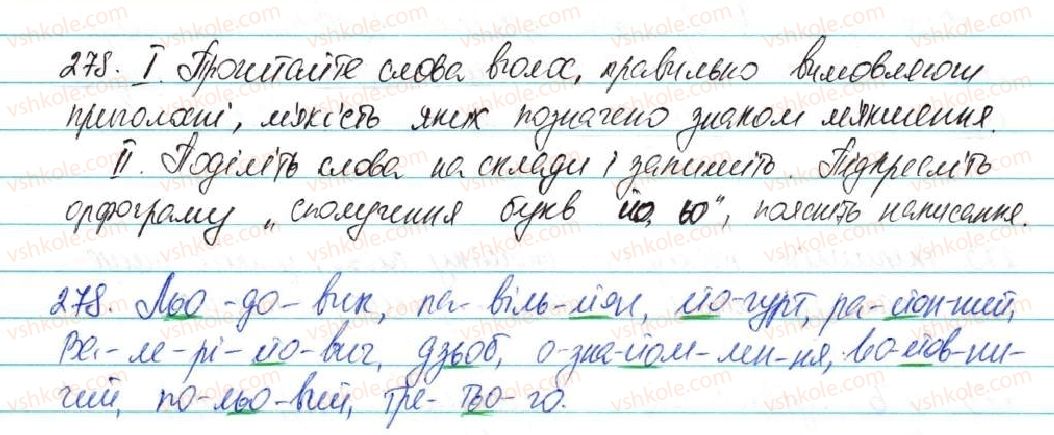 278. І. Прочитайте слова вголос, правильно вимовляючи
приголосні, м'якість яких позначено знаком м'якшення.
ІІ. Поділіть слова на склади і запишіть. Підкресліть
орфограму „сполучення букв йо, ьо", поясніть написання.
278. Льо-до-вик, па-віль-йон, йо-гурт, ра-йон-ний,
Ва-ле-рі-йо-вич, дзьоб, о-зна-йом-лен-ня, во-йов-ни-
чий, по-льо-вий, тре-тьо-го.